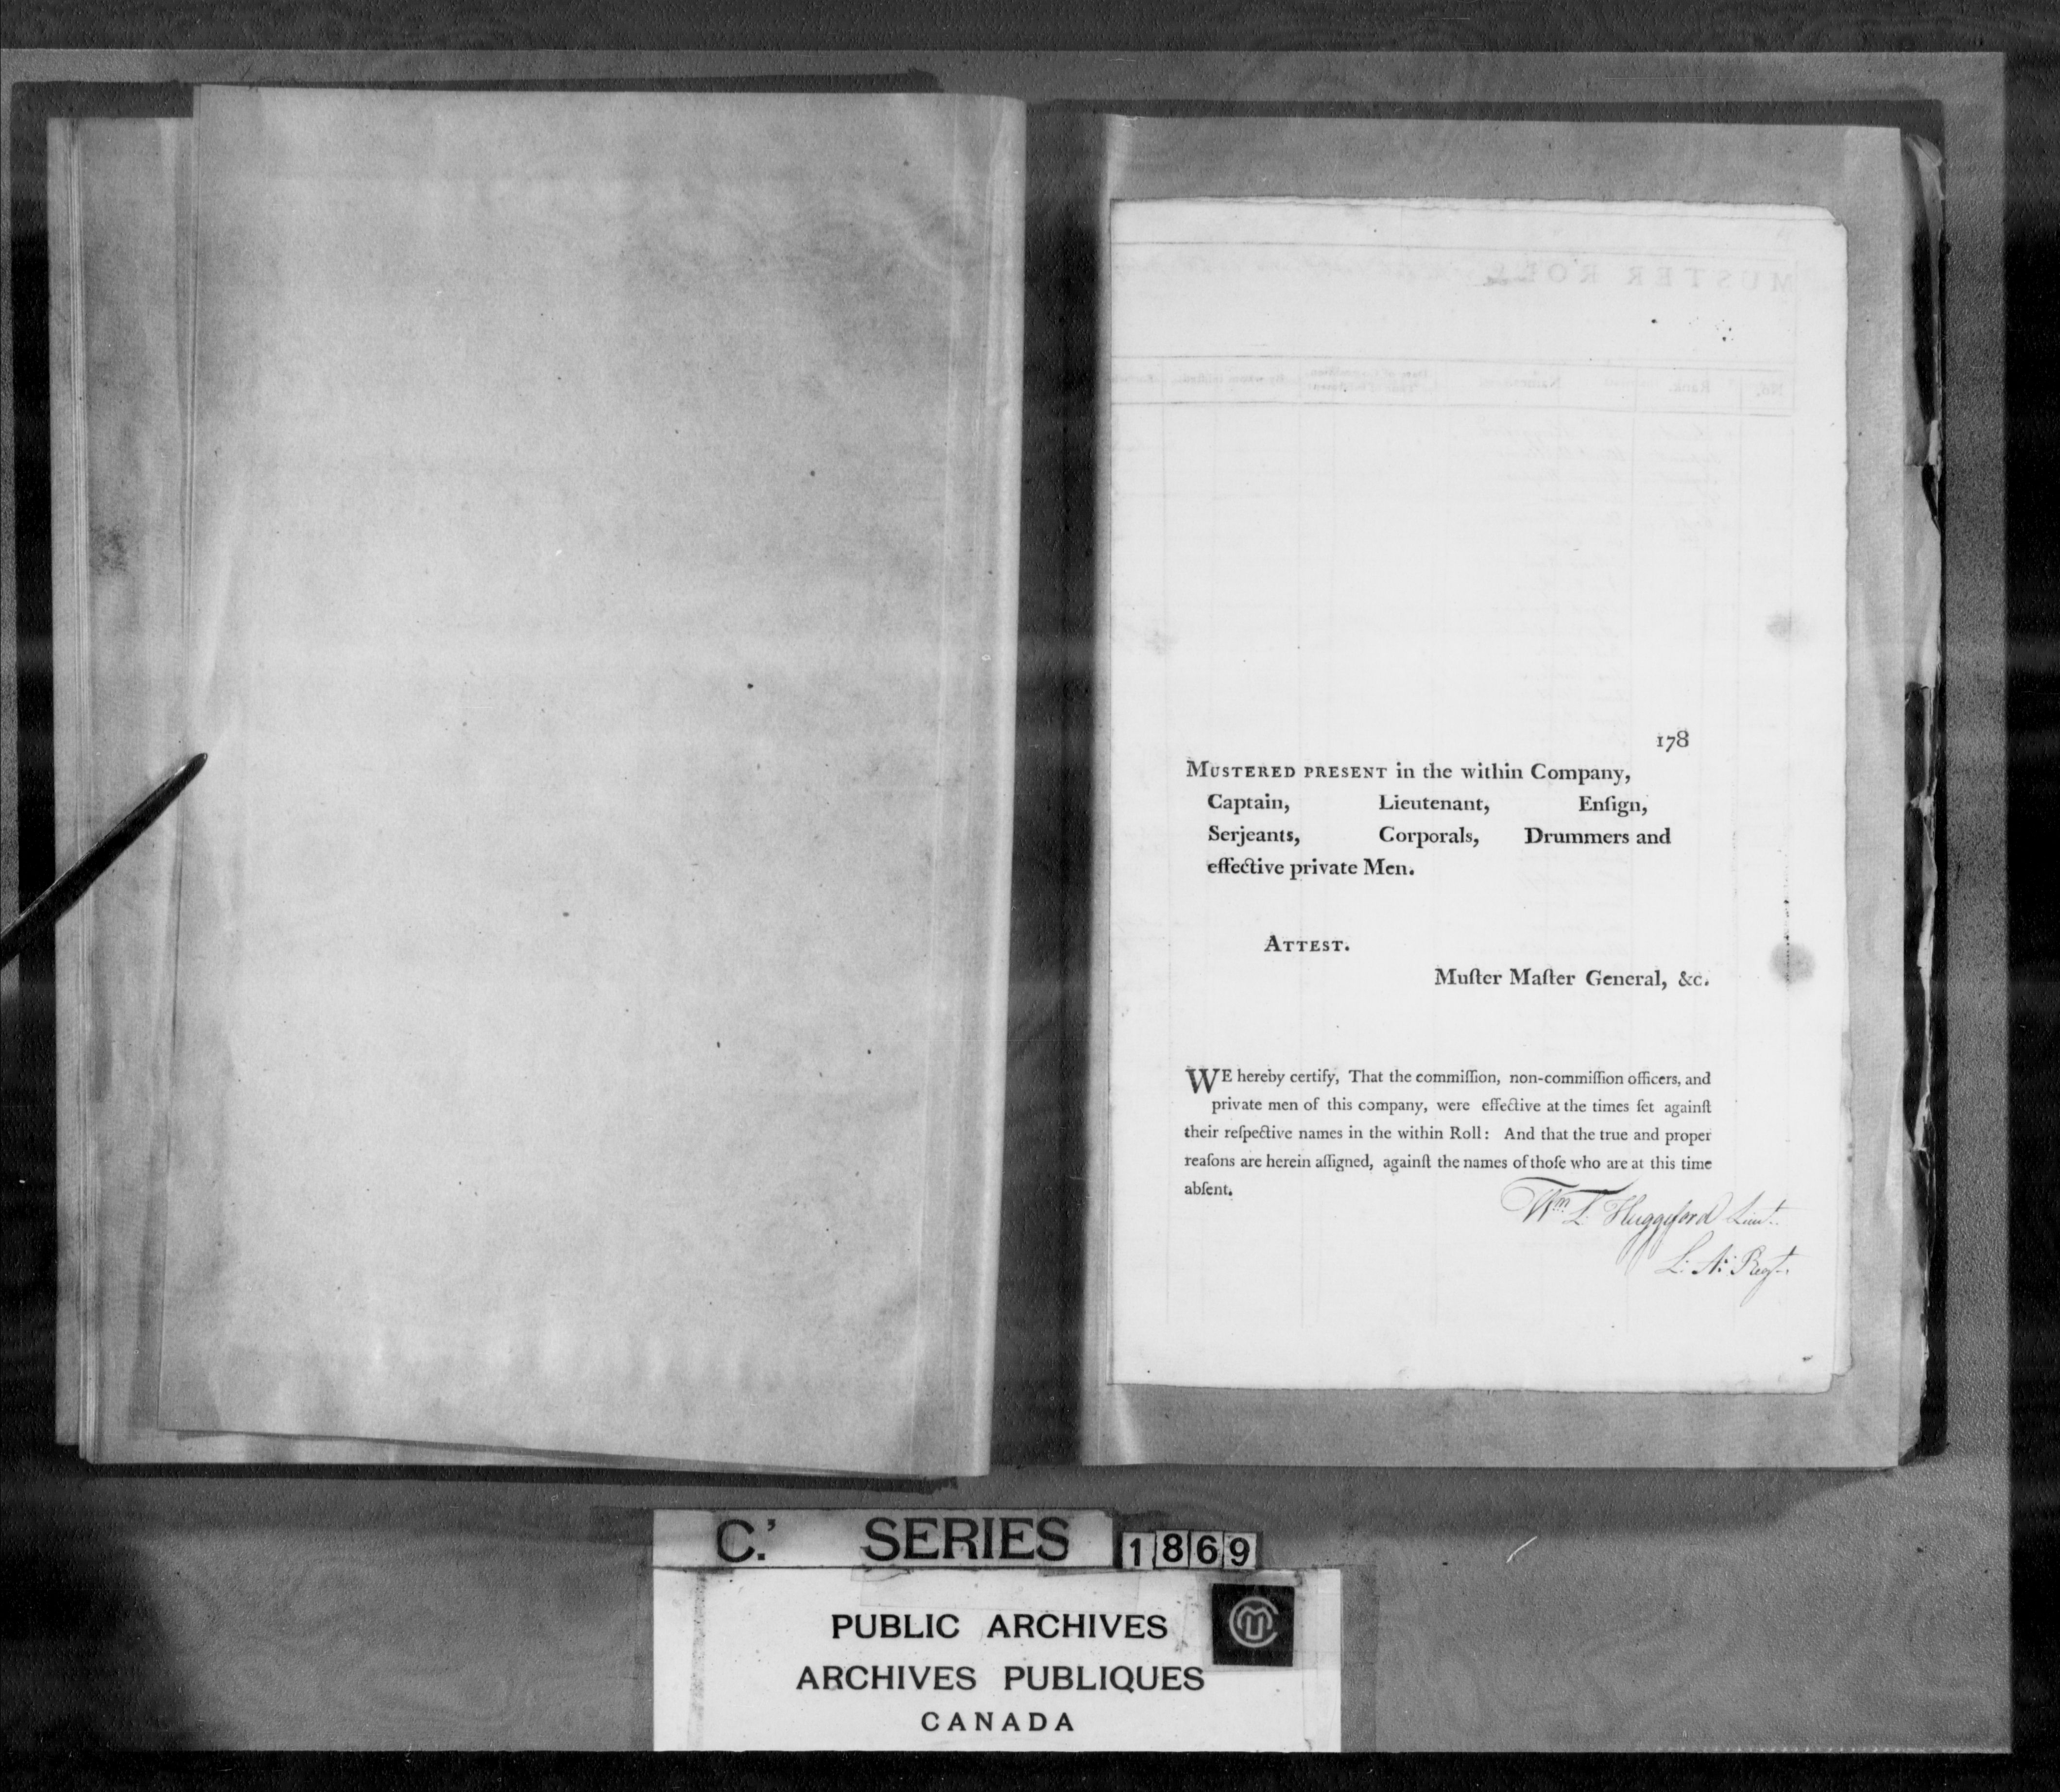 MUSTER ROLL
No.
Rank.
178
MUSTERED PRESENT in the within Company,
Captain, Lieutenant, Enſign,
Serjeants, Corporals, Drummers and
effective private Men.
ATTEST.
Muſter Maſter General, &c.
WE hereby certify, That the commiſſion, non-commiſſion officers, and
private men of this company, were effective at the times ſet againſt
their reſpective names in the within Roll: And that the true and proper
reaſons are herein aſſigned, againſt the names of thoſe who are at this time
abſent.
Wm. L. Huggeford Lieut.
L: A: Regt.
C.' SERIES 1869
PUBLIC ARCHIVES
ARCHIVES PUBLIQUES
CANADA